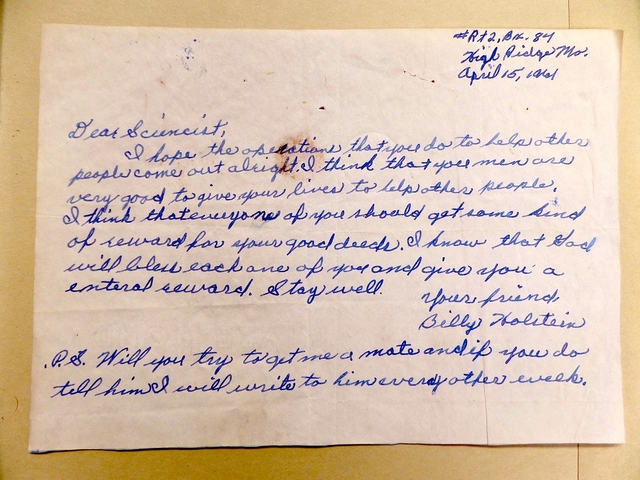 #Rt2, Bx. 84
High Ridge Mo.
April 15, 1961
Dear Sciencist,
I hope the operations that you do to help other
people come out alright. I think that you men are
very good to give your lives to lelp other people.
I think that everyone of you should get some kind
of reward for your good deeds. I know that God
will bless each one of you and give you a
enteral reward. Stay well.
Your friend,
Billy Holstein
P.S. Will you try to get me a mate and if you do
tell him I will write to him every other week.